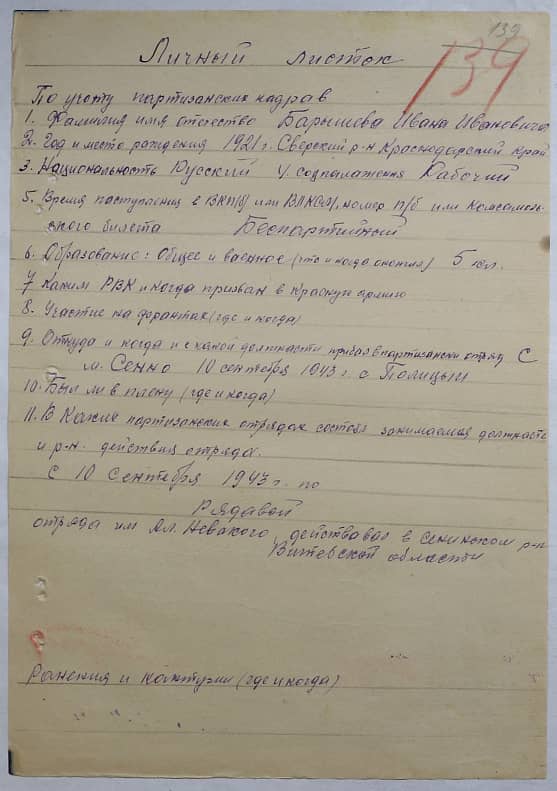 139
139
Личный листок
По учоту партизанских кадрав
1. Фамилия имя отечество Барышева Ивана Ивановича
2. Год и место рождения 1921 г. Сверский р-н Краснодарский край
3. Национальность Русский 4. соцпалажения Рабочий
5. Время паступления в ВКП(б) или ВЛКСМ, номер п/б или Комсомоль-
ского билета Беспартийный
6. Образование: Общее и военное (что и когда окончил) 5 кл.
7. Каким РВК и когда призван в Красную армию
8. Участие на фронтах (где и когда)
9. Откуда и когда и с какой должности прибыл в партизански отряд С
м. Сенно 10 сентября 1943 г. с Полицыи
10. Был ли в плену (где и когда)
11. В Каких партизанских отрядах состоял занимаемая должность
и р-н. действия отряда.
С 10 Сентября 1943 г. по
Рядавой
отряда им Ал. Невского, действавал в Сенинском р-не
Витебской области
Ранения и контузии (где и когда)